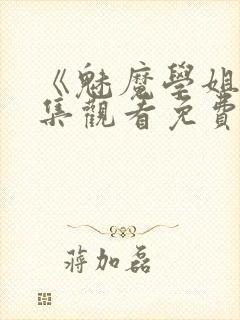 《魅魔學姐
集觀看免費
蔣加磊